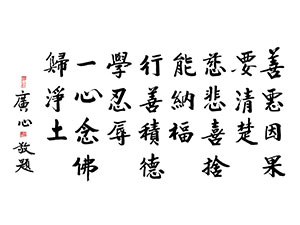 善惡因果
要清楚
慈悲喜捨
能納福
行善積德
學忍辱
一心念佛
歸淨土
廣心敬題